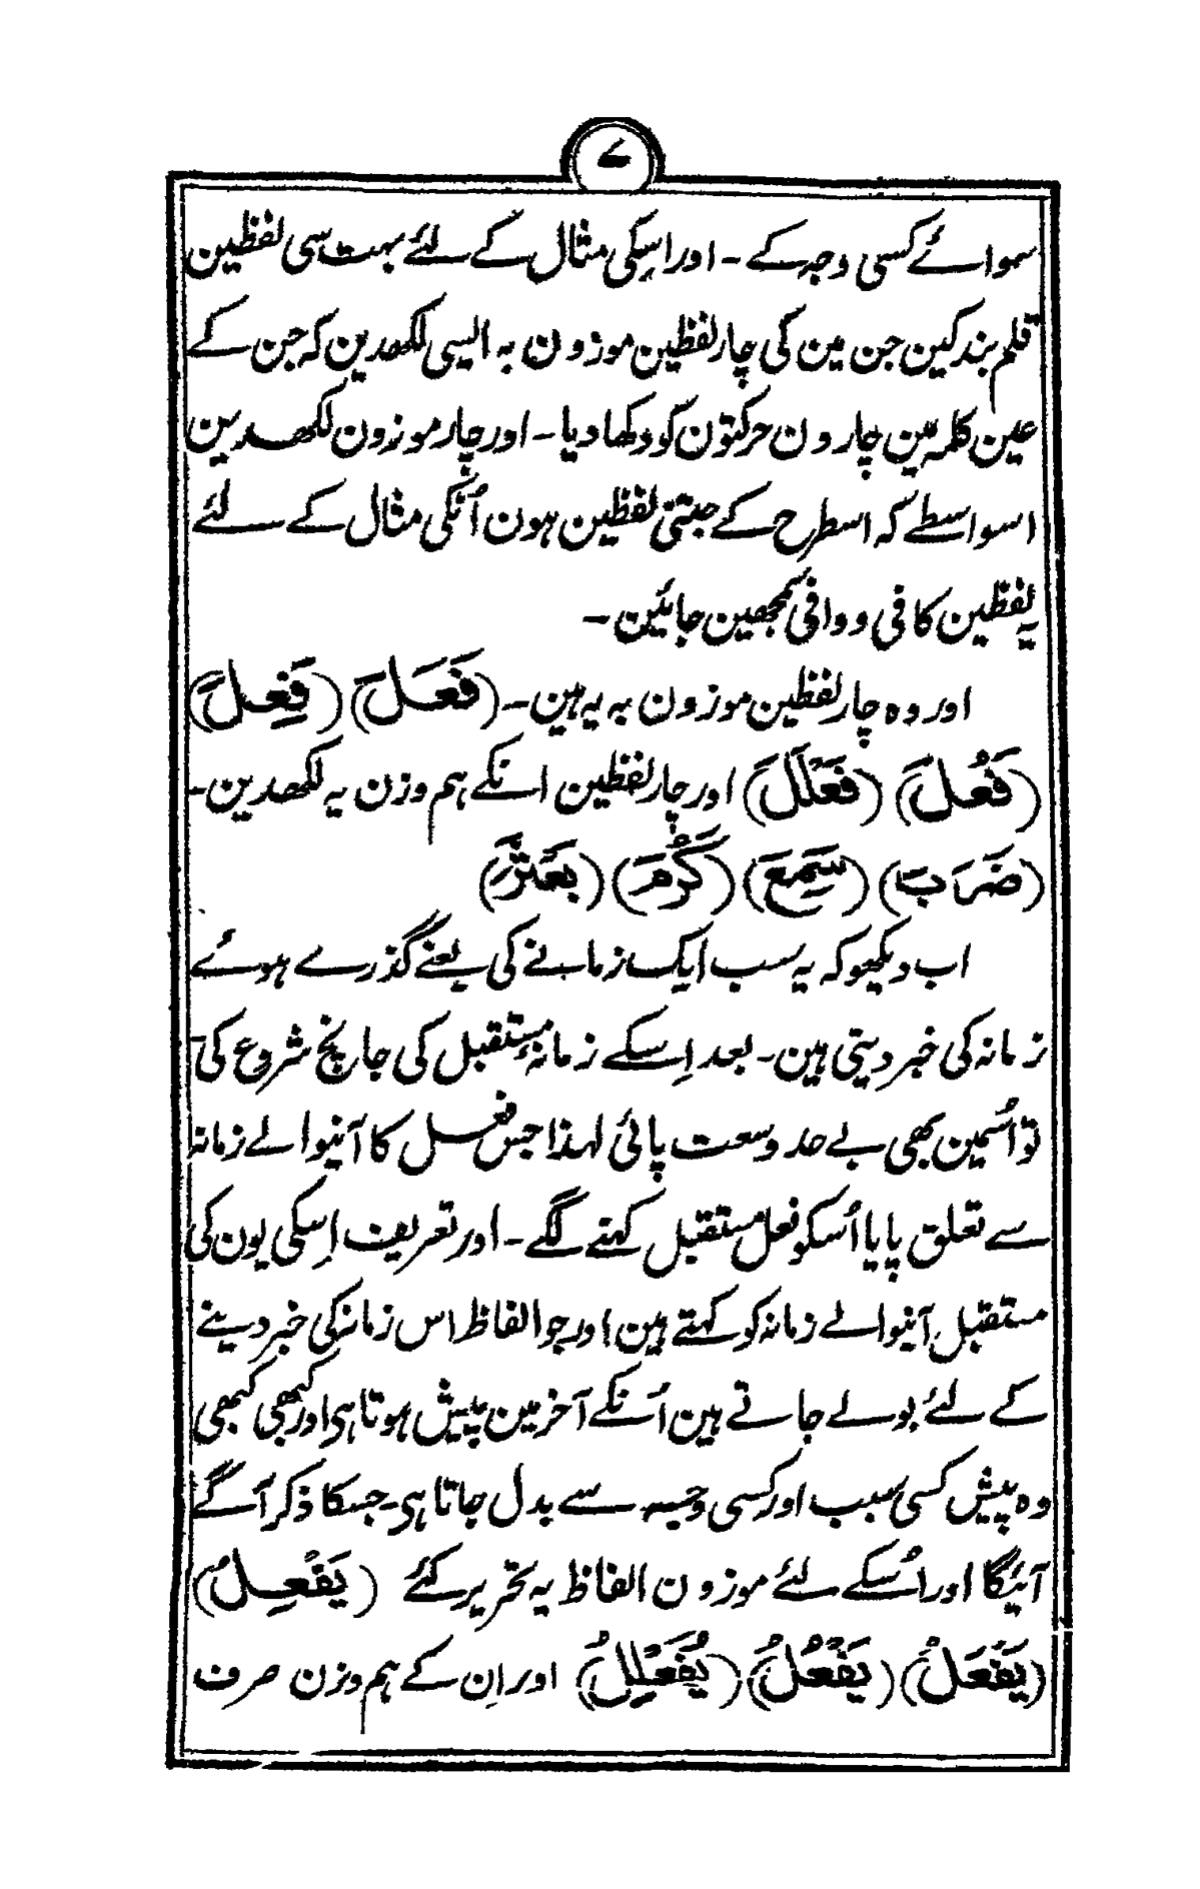 ۷
سوائے کسی وجہ کے ۔ اور اسکی مثال کے لئے بہت سی لفظین
قلم بند کین جن مین کی چار لفظین موزون بہ ایسی لکھدین کہ جن کے
عین کلمہ مین چارون حرکتون کو دکھا دیا ۔ اور چار موزون لکھدین
اسواسطے کہ اسطرح کے جتنی لفظین ہون اُنکی مثال کے لئے
یہ لفظین کافی و وافی سمجھین جائین ۔
اور وہ چار لفظین موزون بہ یہ ہین ۔ (فَعَلَ) (فَعِلَ)
(فَعُلَ) (فَعْلَلَ) اور چار لفظین انکے ہم وزن یہ لکھدین ۔
(ضَرَبَ) (سَمِعَ) (كَرُمَ) (بَعْثَرَ)
اب دیکھو کہ یہ سب ایک زمانے کی یعنے گذرے ہوئے
زمانہ کی خبر دیتی ہین ۔ بعد اِسکے زمانۂ مستقبل کی جانچ شروع کی
تو اُسمین بھی بے حد وسعت پائی لہذا جس فعل کا آنیوالے زمانہ
سے تعلق پایا اُسکو فعل مستقبل کہنے لگے ۔ اور تعریف اِسکی یون کی
مستقبل آنیوالے زمانہ کو کہتے ہین اور جو الفاظ اس زمانہ کی خبر دینے
کے لئے بولے جاتے ہین اُنکے آخر مین پیش ہوتا ہی اور کبھی کبھی
وہ پیش کسی سبب اور کسی وجہ سے بدل جاتا ہی ۔ جسکا ذکر آگے
آئیگا اور اُسکے لئے موزون الفاظ یہ تحریر کئے (يَفْعِلُ)
(يَفْعَلُ) (يَفْعُلُ) (يُفَعْلِلُ) اور اِن کے ہم وزن صرف